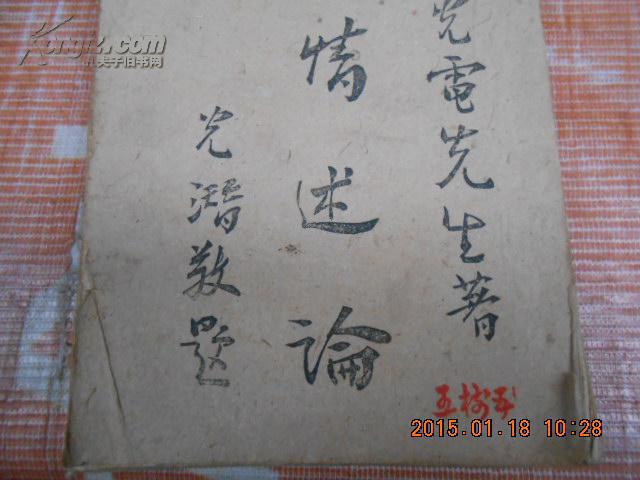 光電先生著
情述論
光潛敬題
王樹平
Kongfz.com
孔夫子旧书网
2015.01.18 10:28